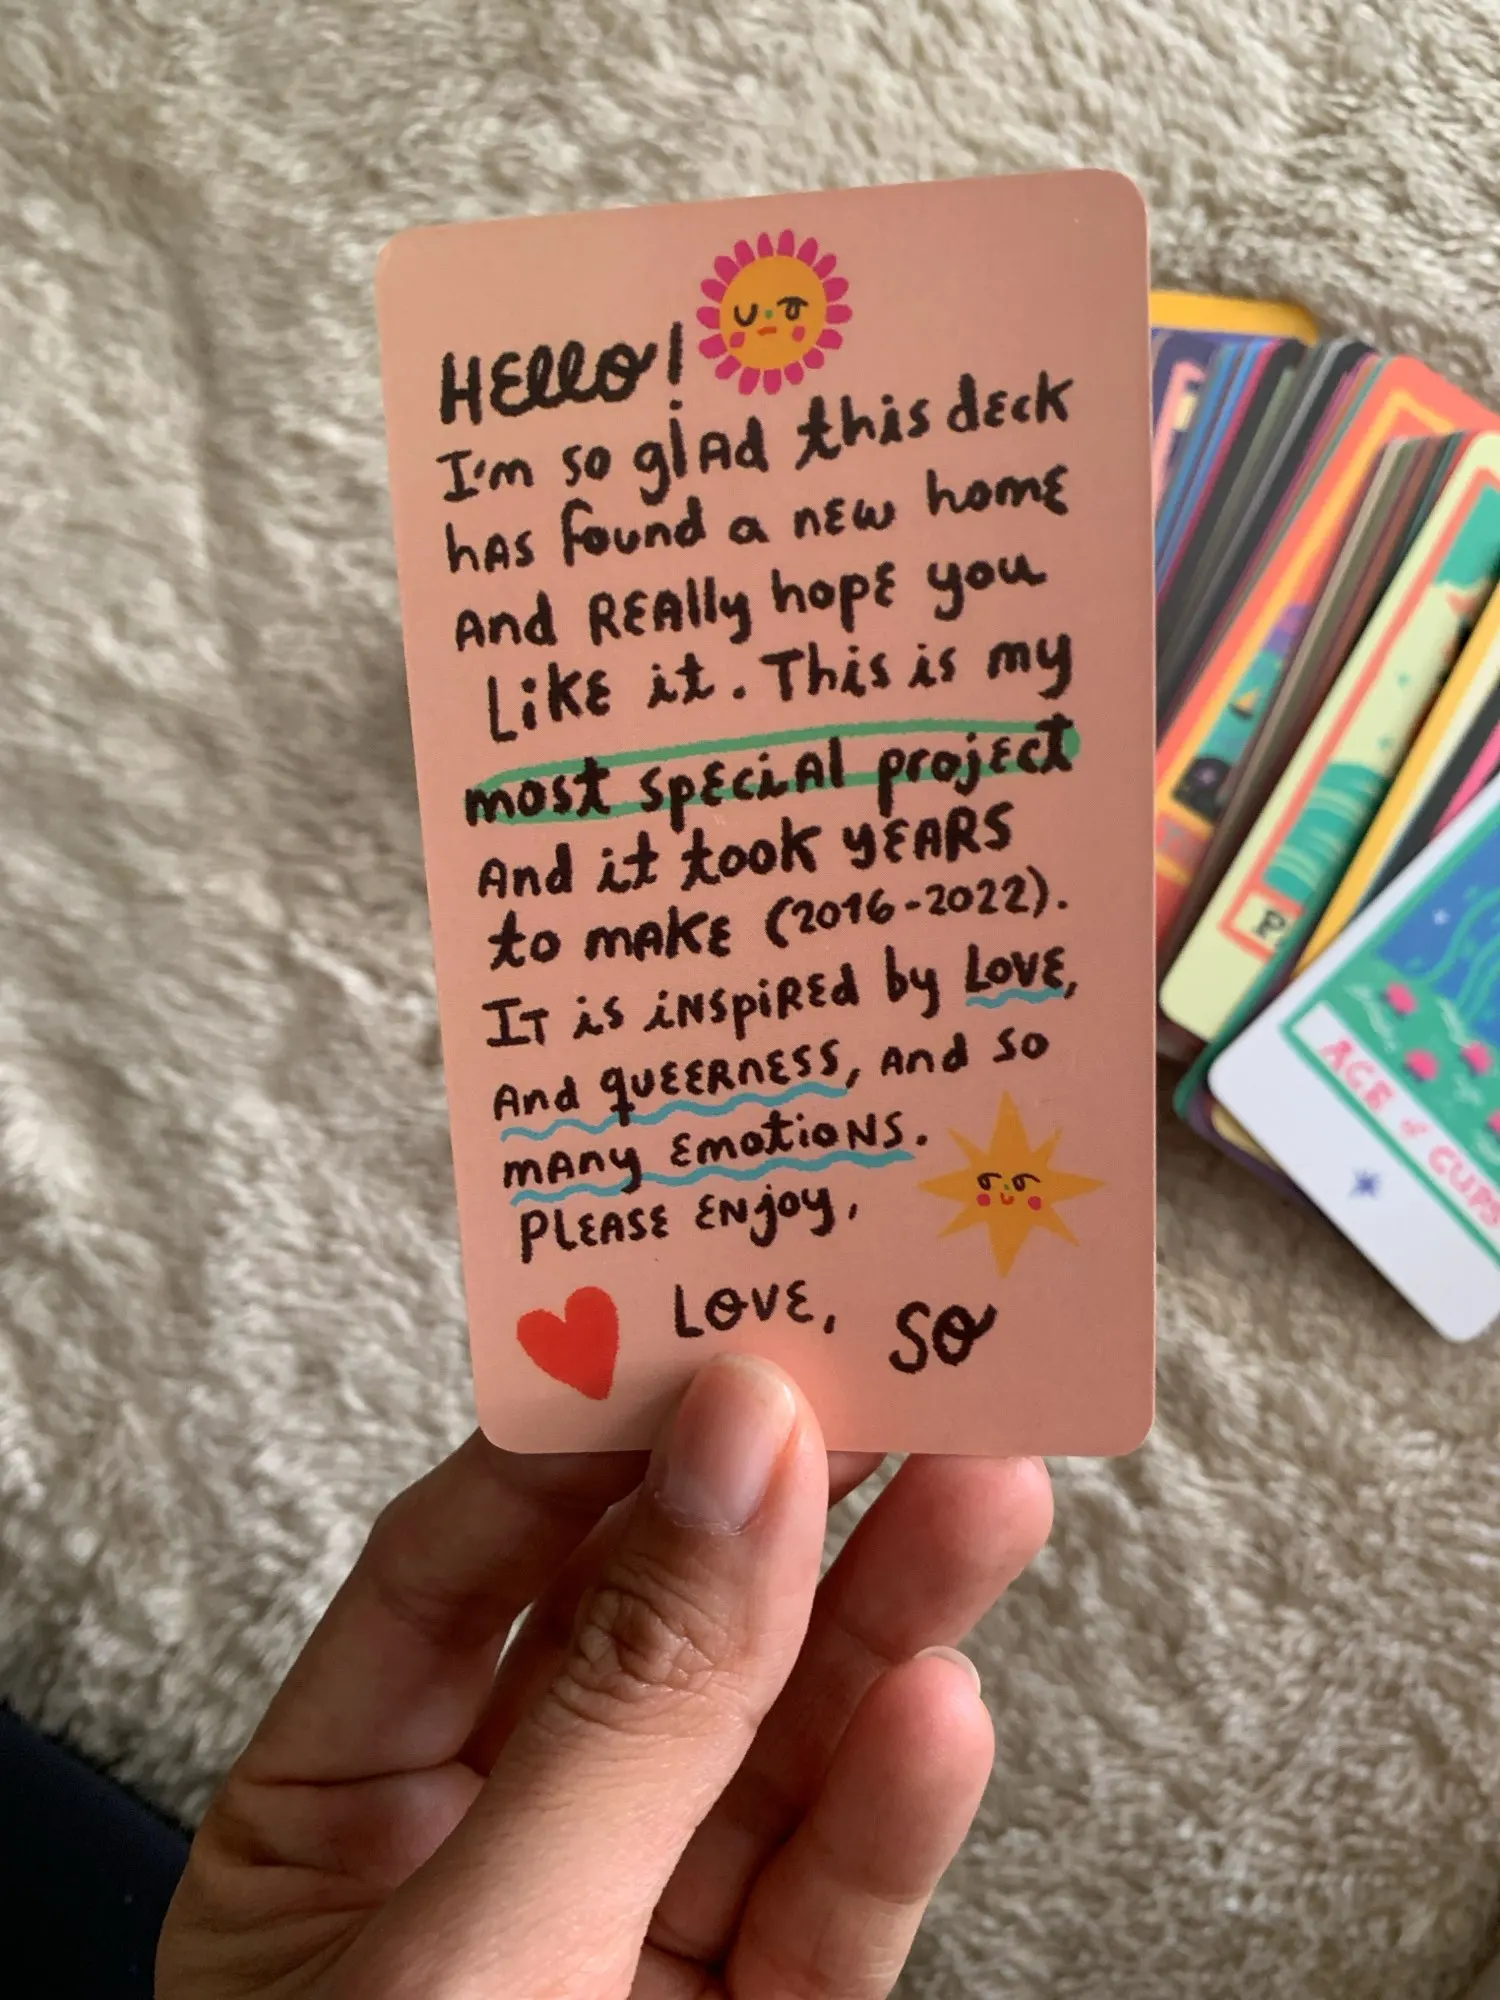 HELLO!
I'm so glad this deck
has found a new home
and really hope you
like it. This is my
most special project
and it took years
to make (2016-2022).
It is inspired by love,
and queerness, and so
many emotions.
Please enjoy,
Love, So
ACE of CUPS
P